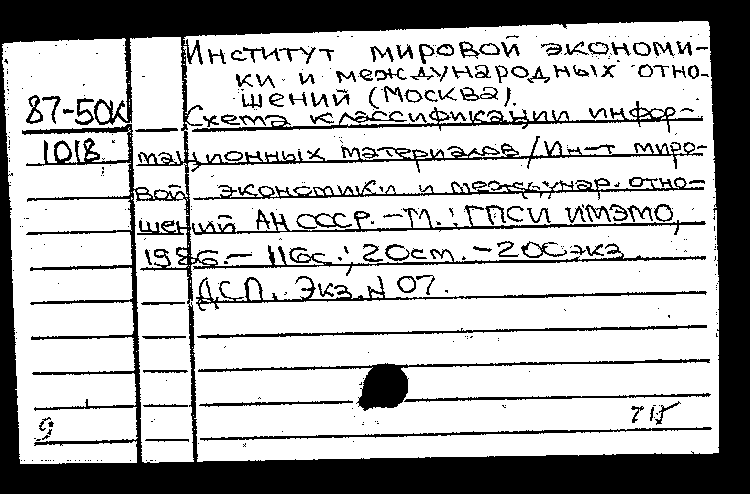 Институт мировой экономи-
ки и международных отно-
шений (Москва).
87-50К Схема классификации инфор-
1018 мационных материалов/Ин-т миро-
вой экономики и междунар. отно-
шений АН СССР.-М.: ГПСИ ИМЭМО,
1986.- 116с.; 20см. -200экз.
ДСП. Экз. N 07.
9